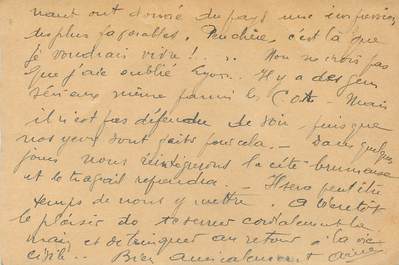 nant ont donné du pays une impression
des plus favorables. Peuchère c'est là que
je voudrais vivre! ... Non ne crois pas
que j'aie oublié Lyon. - Il y a des gens
sérieux même parmi les - Mais
il n'est pas défendu de voir, puisque
nos yeux sont faits pour cela. - Dans quelques
jours nous réintégrons la cité brumeuse
et le travail reprendra. - Il sera peut être
temps de nous y mettre. A bientôt
le plaisir de te serrer cordialement la
main et de trinquer au retour à la vie
civile. - Bien amicalement